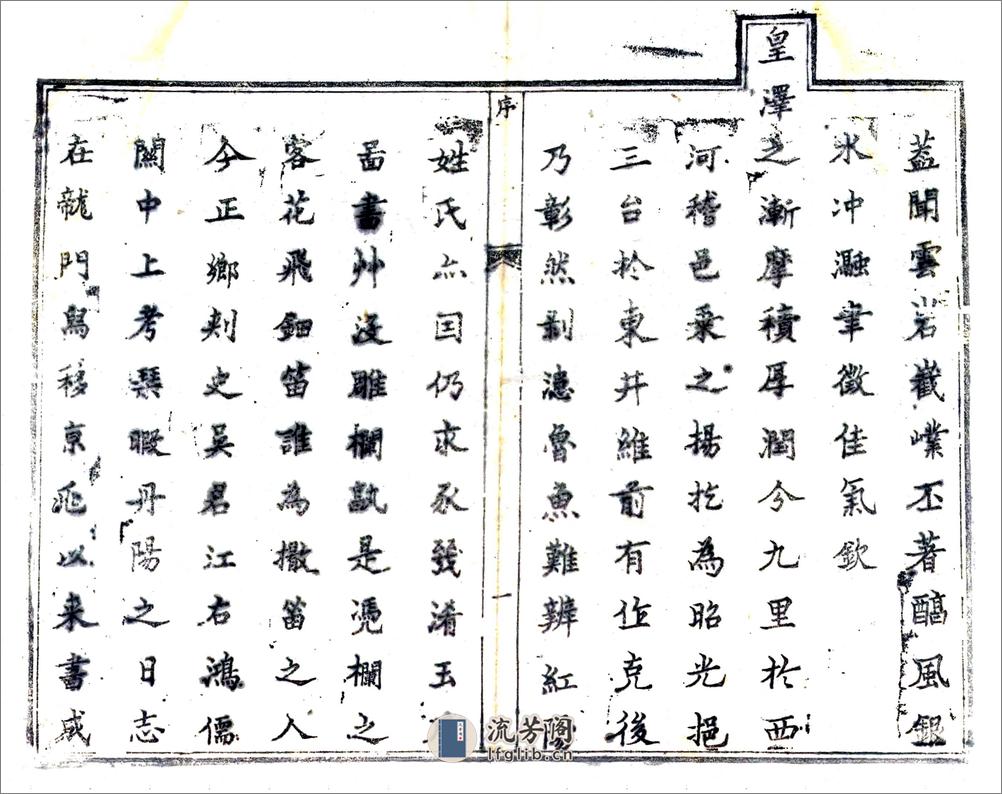 蓋聞雲岩嶻嶪丕著醕風銀
水冲瀜聿徵佳氣欽
皇澤之漸摩積厚潤兮九里於西
河稽邑乗之揚扢為昭光挹
三台於東井維前有作克後
乃彰然剥漶魯魚難辨紅
序
一
姓氏亦囙仍求永幾淆玉
啚書艸沒雕欄孰是凭欄之
客花飛鈿笛誰為撒笛之人
今正鄉刾史吳君江右鴻儒
關中上考琴暇丹陽之日志
在龍門舄移京兆以来書成
流芳閣
lfglib.cn